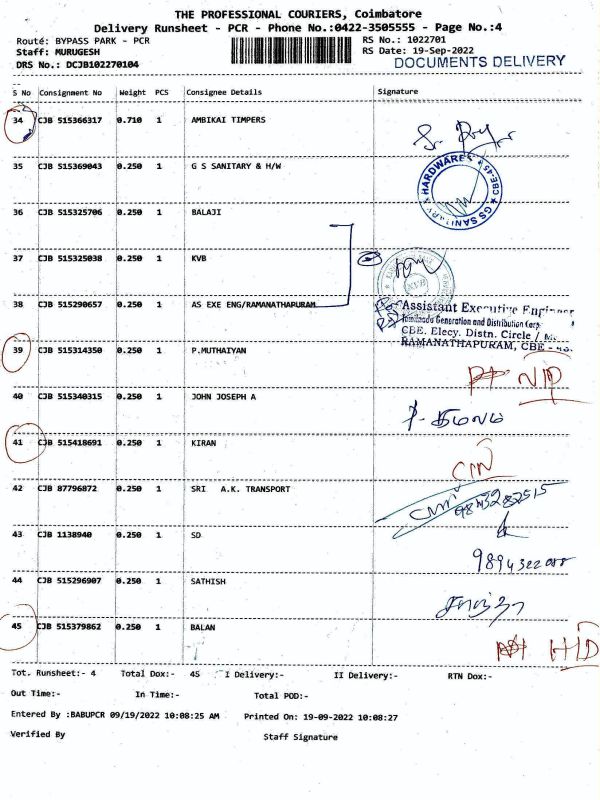 THE PROFESSIONAL COURIERS, Coimbatore
Delivery Runsheet - PCR - Phone No.:0422-3505555 - Page No.:4
Route: BYPASS PARK - PCR
RS No.: 1022701
Staff: MURUGESH
RS Date: 19-Sep-2022
DRS No.: DCJB102270104
DOCUMENTS DELIVERY
S No Consignment No Weight PCS Consignee Details Signature
34 CJB 515366317 0.710 1 AMBIKAI TIMPERS
35 CJB 515369043 0.250 1 G S SANITARY & H/W
GS SANITARY & HARDWARES ★ CBE-45 ★
36 CJB 515325706 0.250 1 BALAJI
37 CJB 515325038 0.250 1 KVB
KVB
38 CJB 515290657 0.250 1 AS EXE ENG/RAMANATHAPURAM
Assistant Executive Engineer
Tamilnadu Generation and Distribution Corp
CBE. Elecy. Distn. Circle / M
RAMANATHAPURAM, CBE - 45.
39 CJB 515314350 0.250 1 P.MUTHAIYAN
40 CJB 515340315 0.250 1 JOHN JOSEPH A
41 CJB 515418691 0.250 1 KIRAN
42 CJB 87796872 0.250 1 SRI A.K. TRANSPORT
43 CJB 1138940 0.250 1 SD
44 CJB 515296907 0.250 1 SATHISH
45 CJB 515379862 0.250 1 BALAN
H/D
Tot. Runsheet:- 4 Total Dox:- 45 I Delivery:- II Delivery:- RTN Dox:-
Out Time:- In Time:- Total POD:-
Entered By :BABUPCR 09/19/2022 10:08:25 AM Printed On: 19-09-2022 10:08:27
Verified By Staff Signature